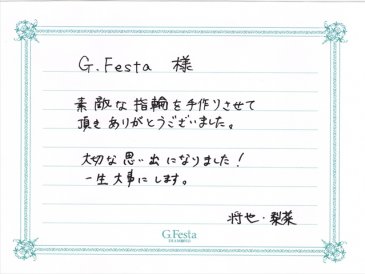 G.Festa 様
素敵な指輪を手作りさせて
頂きありがとうございました。
大切な思い出になりました！
一生大事にします。
将也・梨菜
G.Festa